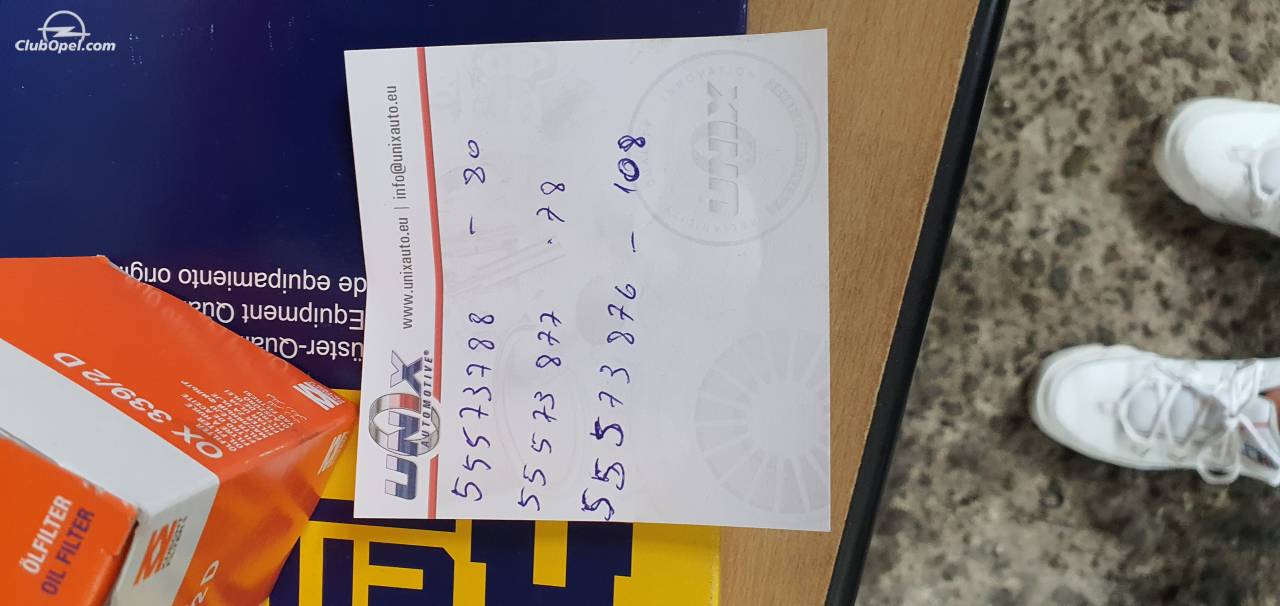 ClubOpel.com
UNIX
AUTOMOTIVE®
www.unixauto.eu | info@unixauto.eu
55573788 - 30
55573877 . 78
55573876 - 108
UNIX
de equipamiento origi
Equipment Qual
üster-Qual
OX 339/2 D
ÖLFILTER
OIL FILTER
2 D